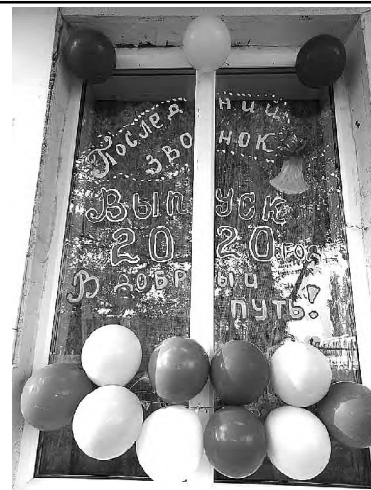 Последний
звонок
Выпуск
2020 год
В добрый
путь!